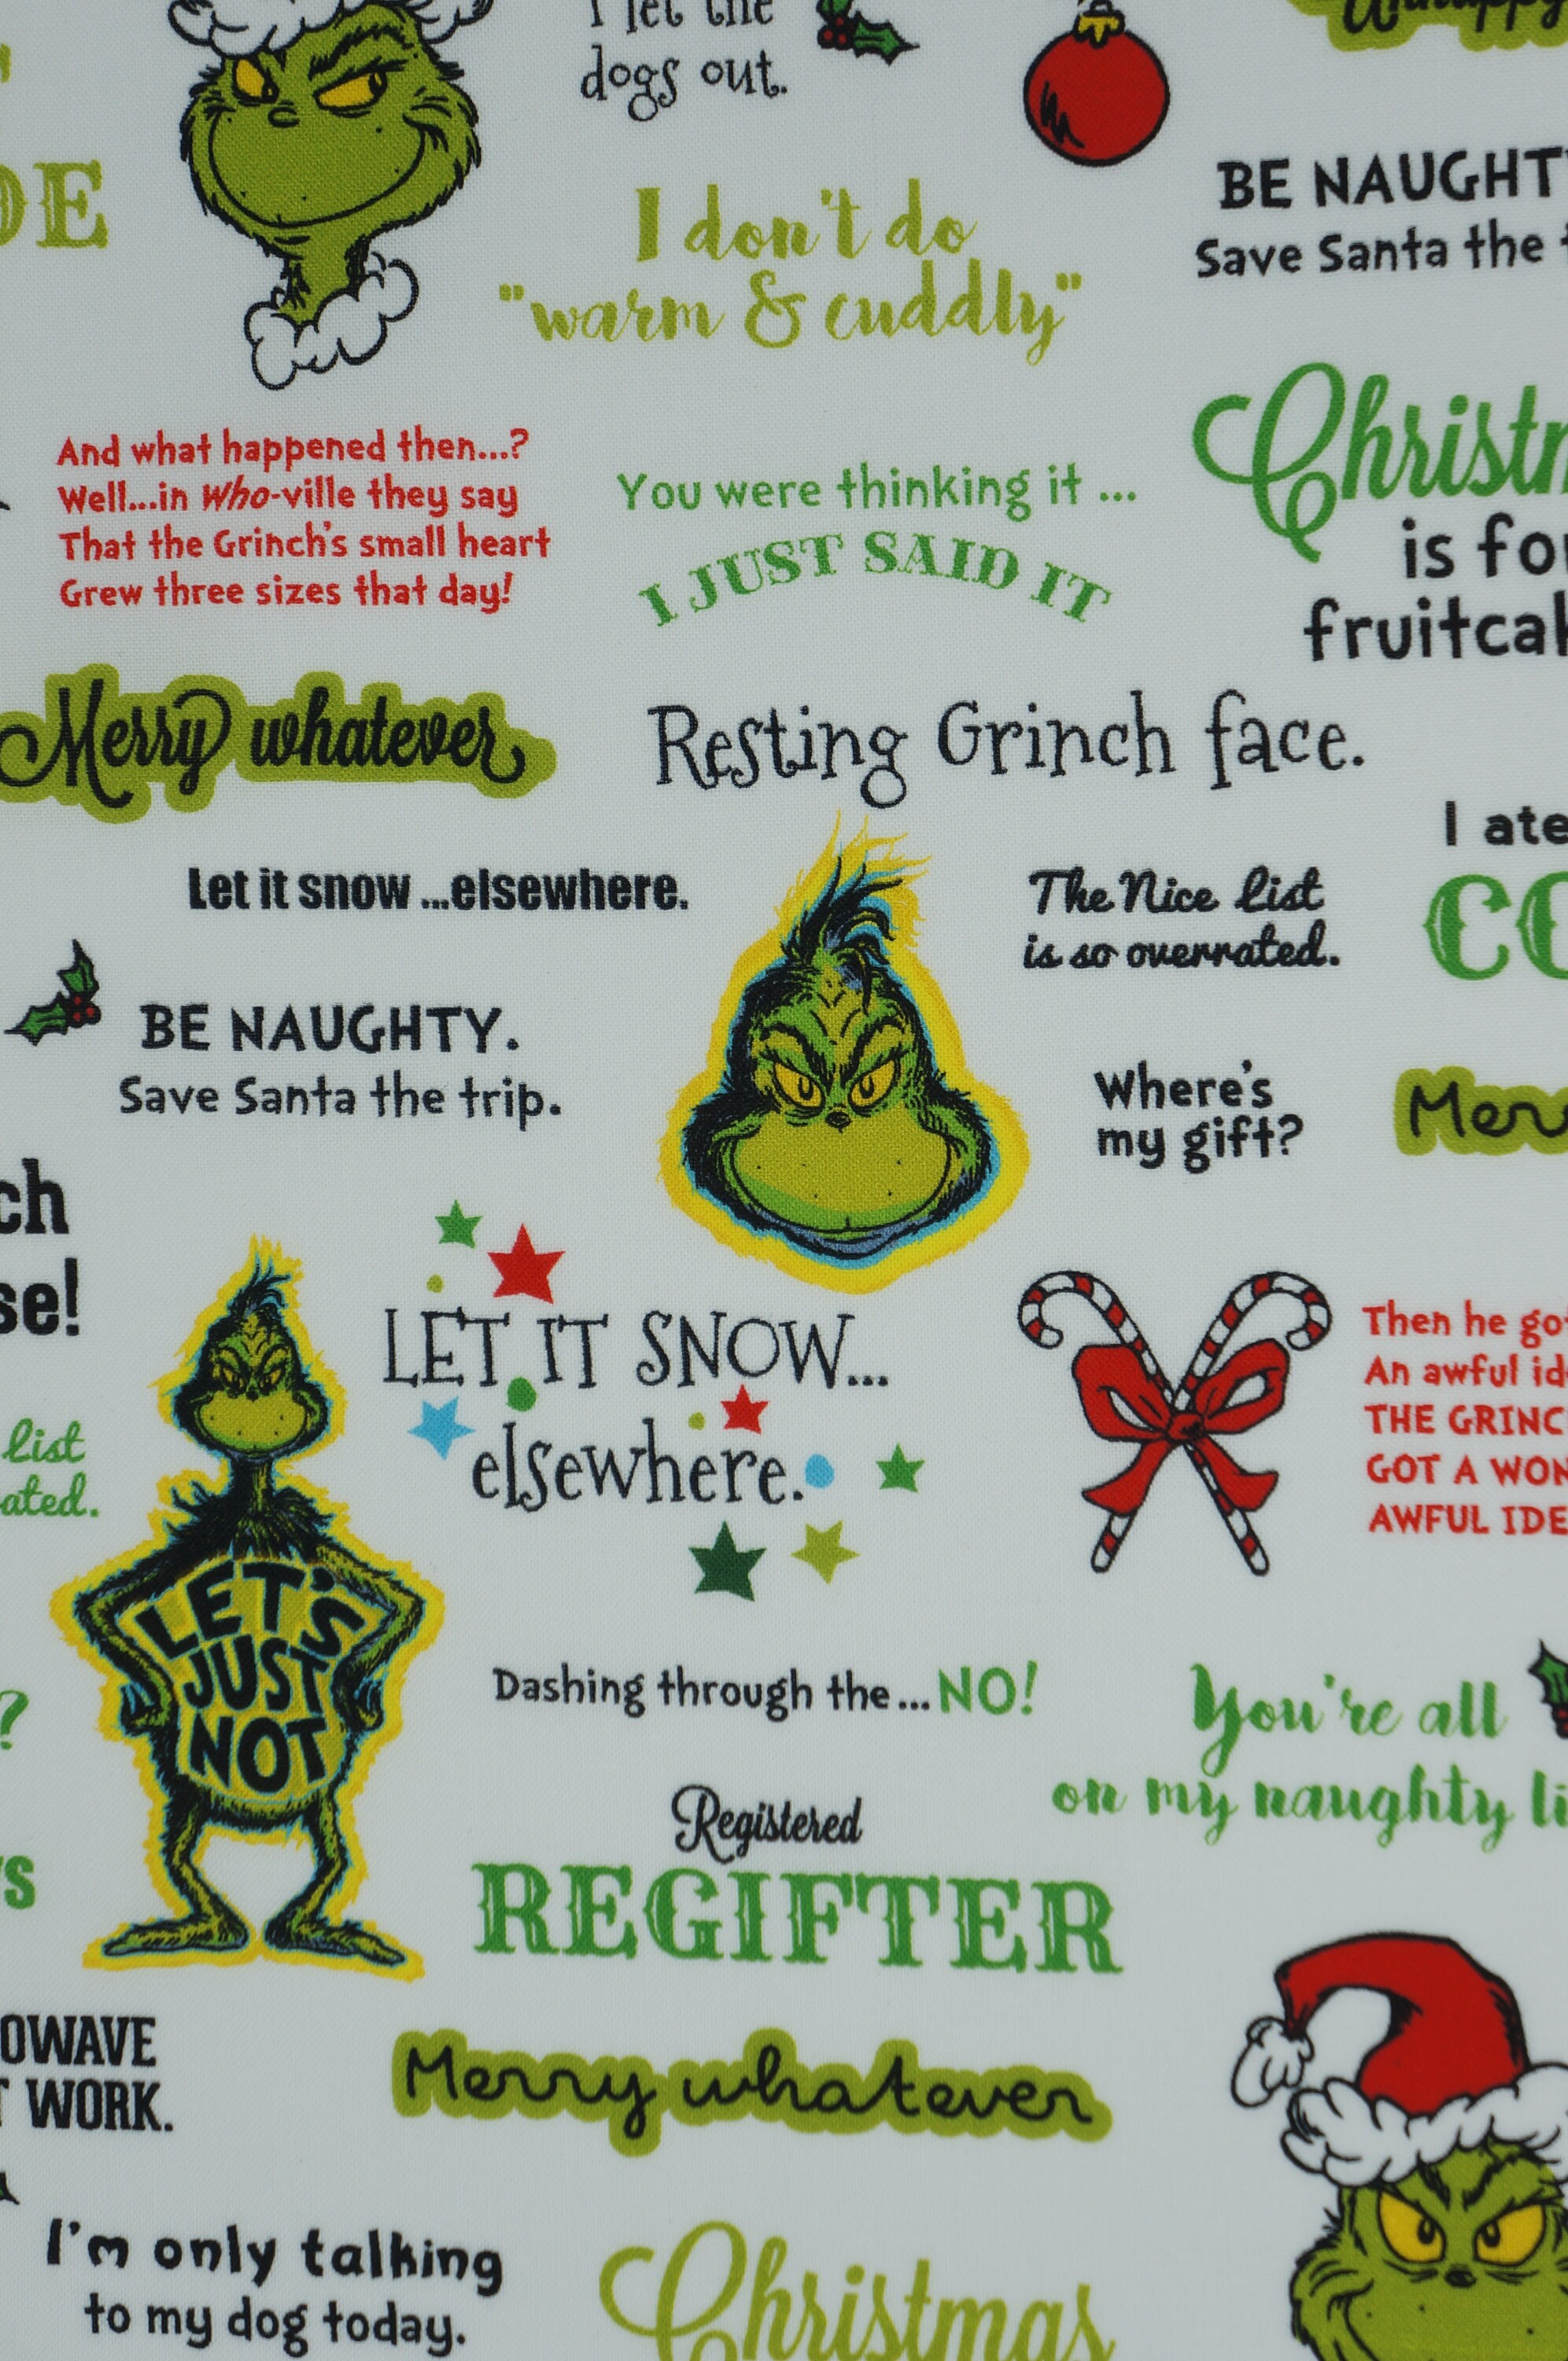 I let the
dogs out.
DE
I don't do
"warm & cuddly"
BE NAUGHTY
Save Santa the
And what happened then...?
Well...in Who-ville they say
That the Grinch's small heart
Grew three sizes that day!
You were thinking it ...
I JUST SAID IT
is for
Merry whatever
Resting Grinch face.
I ate
CO
Let it snow ...elsewhere.
The Nice List
is so overrated.
BE NAUGHTY.
Save Santa the trip.
Where's
my gift?
ch
se!
LET IT SNOW...
elsewhere.
Then he go
An awful id
THE GRINC
GOT A WON
AWFUL IDE
list
ated.
LET'S
JUST
NOT
Dashing through the... NO!
?
You're all
on my naughty li
Registered
REGIFTER
OWAVE
T WORK.
Merry whatever
I'm only talking
to my dog today.
Christmas